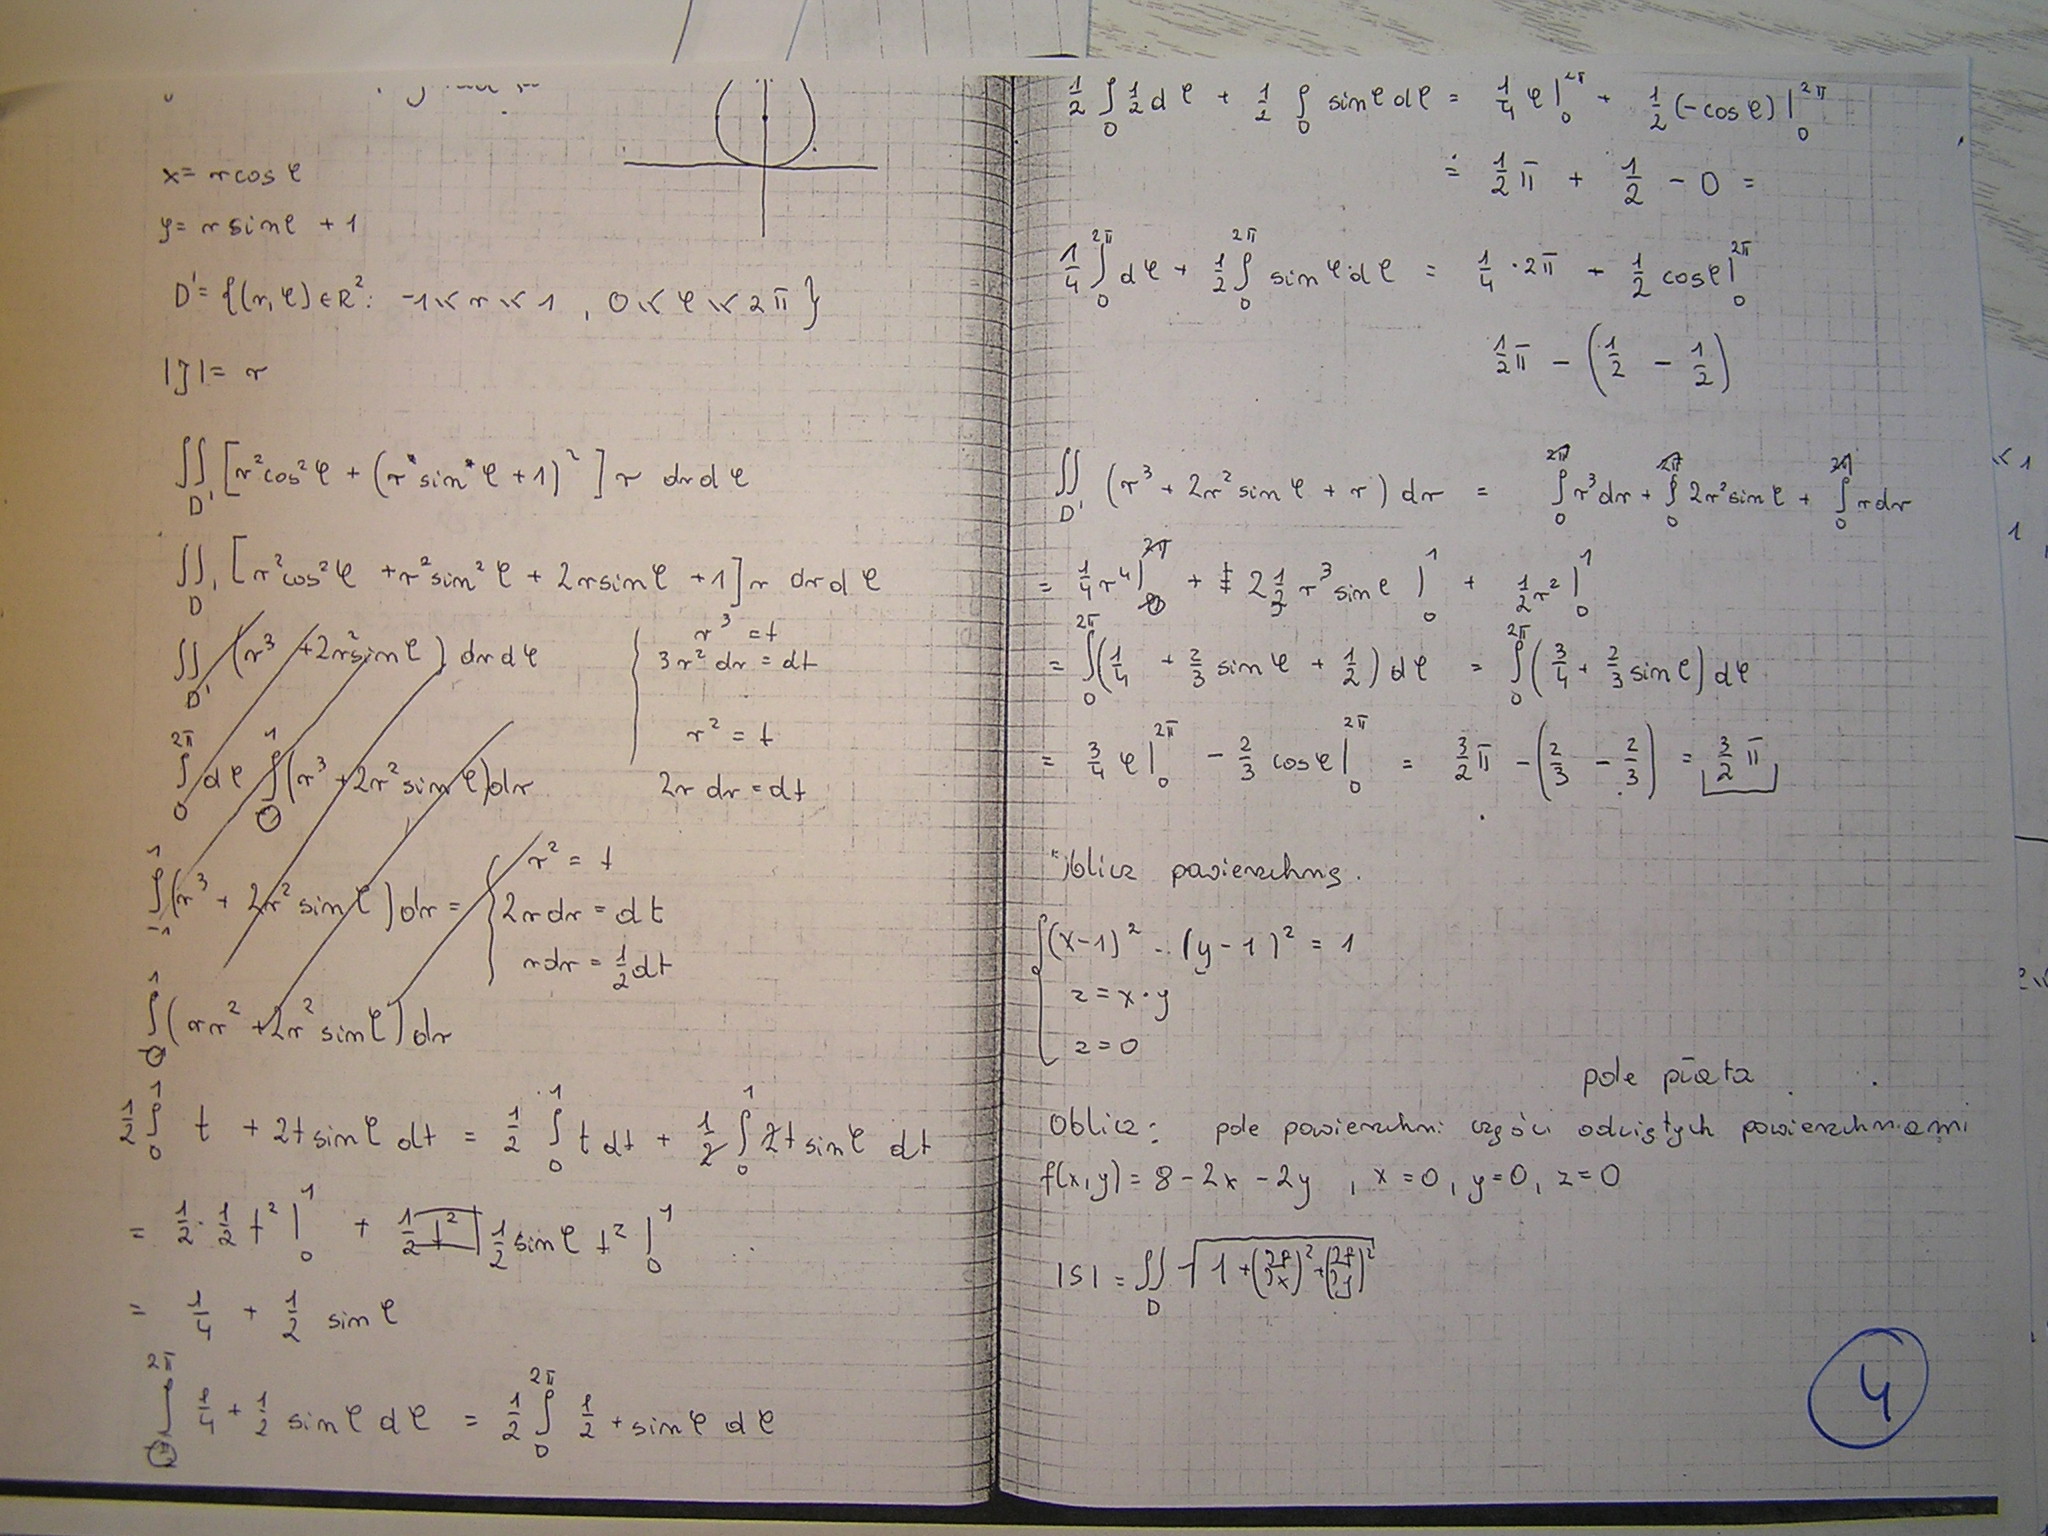 x = r cos φ
y = r sin φ + 1
D' = {(r, φ) ∈ R²: -1 ≤ r ≤ 1 , 0 ≤ φ ≤ 2π}
|J| = r
∬_D' [r² cos² φ + (r sin φ + 1)²] r dr dφ
∬_D' [r² cos² φ + r² sin² φ + 2r sin φ + 1] r dr dφ
∬_D' (r³ + 2r² sin φ) dr dφ
r³ = t
3r² dr = dt
r² = t
2r dr = dt
∫_0^2π dφ ∫_0^1 (r³ + 2r² sin φ) dr
∫_-1^1 (r³ + 2r² sin φ) dr =
r² = t
2r dr = dt
r dr = 1/2 dt
∫_0^1 (r r² + 2r² sin φ) dr
1/2 ∫_0^1 t + 2t sin φ dt = 1/2 ∫_0^1 t dt + 1/2 ∫_0^1 2t sin φ dt
= 1/2 · 1/2 t² |_0^1 + 1/2 t² 1/2 sin φ t² |_0^1
= 1/4 + 1/2 sin φ
∫_0^2π 1/4 + 1/2 sin φ dφ = 1/2 ∫_0^2π 1/2 + sin φ dφ
1/2 ∫_0 1/2 dφ + 1/2 ∫_0 sin φ dφ = 1/4 φ |_0^2π + 1/2 (-cos φ) |_0^2π
= 1/2 π + 1/2 - 0 =
1/4 ∫_0^2π dφ + 1/2 ∫_0^2π sin φ dφ = 1/4 · 2π - 1/2 cos φ |_0^2π
1/2 π - (1/2 - 1/2)
∬_D' (r³ + 2r² sin φ + r) dr = ∫_0 r³ dr + ∫_0 2r² sin φ + ∫_0 r dr
= 1/4 r⁴ | + 2 1/3 r³ sin φ |_0^1 + 1/2 r² |_0^1
= ∫_0^2π (1/4 + 2/3 sin φ + 1/2) dφ = ∫_0^2π (3/4 + 2/3 sin φ) dφ
= 3/4 φ |_0^2π - 2/3 cos φ |_0^2π = 3/2 π - (2/3 - 2/3) = 3/2 π
Oblicz powierzchnię.
(x-1)² - (y-1)² = 1
z = x · y
z = 0
pole płata
Oblicz: pole powierzchni części odciętych powierzchniami
f(x,y) = 8 - 2x - 2y , x = 0, y = 0, z = 0
|S| = ∬_D √(1 + (∂f/∂x)² + (∂f/∂y)²)
4